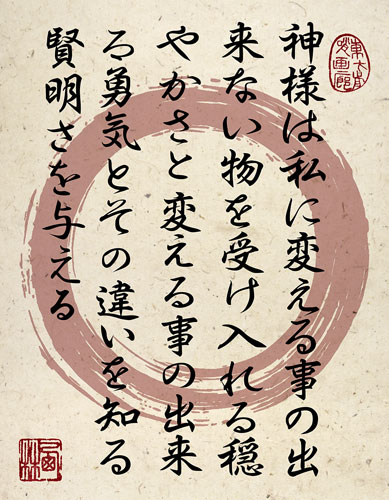 神様は私に変える事の出
来ない物を受け入れる穏
やかさと変える事の出来
る勇気とその違いを知る
賢明さを与える